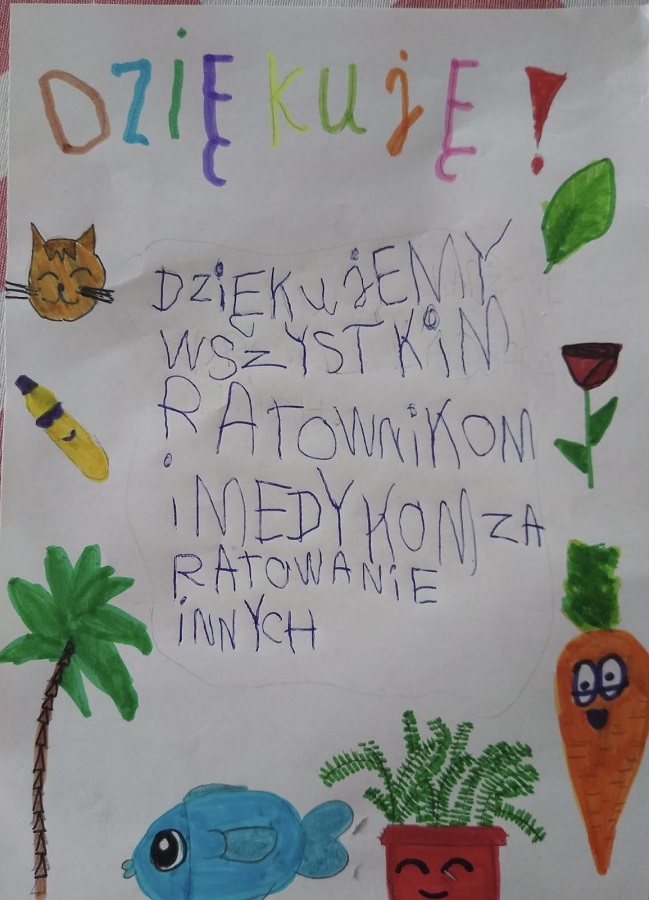 DZIĘKUJĘ!
DZIĘKUJEMY
WSZYSTKIM
RATOWNIKOM
i MEDYKOM ZA
RATOWANIE
INNYCH